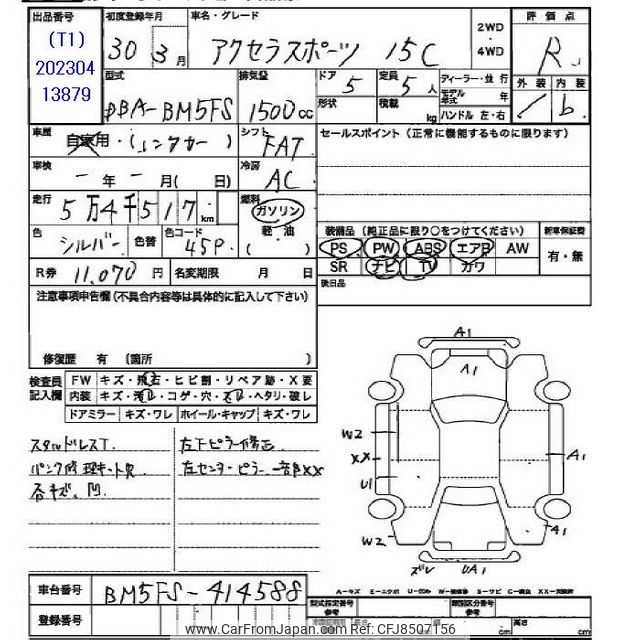 出品番号 初度登録年月 車名・グレード 評価点
(T1)
202304
13879
30年 3月 アクセラスポーツ 15C 2WD・4WD R
型式 排気量 ドア 5 定員 5人 ディーラー・並行 外装 内装
DBA-BM5FS 1500cc 形状 積載 kg モデル年式 年 ハンドル 左・右 b
車歴 自家用・(レンタカー) シフト FAT セールスポイント(正常に機能するものに限ります)
車検 ー年ー月( 日) 冷房 AC
走行 5万4千517km 燃料 ガソリン 軽・油 ( )
装備品(純正品に限り○をつけてください) 新車保証書
色 シルバー 色替 色コード 45P
PS PW ABS エアB AW 有・無
SR ナビ TV カワ
R券 11,070円 名変期限 月 日 後日品
注意事項申告欄(不具合内容等は具体的に記入して下さい)
修復歴 有 (箇所 )
検査員記入欄 FW キズ・飛石・ヒビ割・リペア跡・X要
内装 キズ・汚レ・コゲ・穴・スレ・ヘタリ・破レ
ドアミラー キズ・ワレ ホイール・キャップ キズ・ワレ
スタッドレスT. 左下ピラー修正
パンク修理キット欠 左センターピラー一部XX
各キズ、凹
A1
A1
W2
XX A1
U1
W2 A1
ズレ UA1
車台番号 BM5FS-414588
A-キズ E-エクボ
型式指定番号 参考 類別区分番号 参考
登録番号 cm cm 高さ cm
www.CarFromJapan.com Ref: CFJ8507156